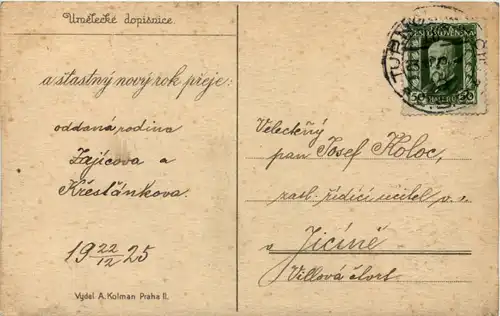 Umělecké dopisnice.
a šťastný nový rok přeje:
oddaná rodina
Zajícova a
Křesťánkova.
19 22/12 25
Vydal A. Kolman Praha II.
TURN
50
50
Veleckěný
pan Josef Holoc,
zasl. řídící učitel v. v.
v Jičíně
Villová čtvrť.